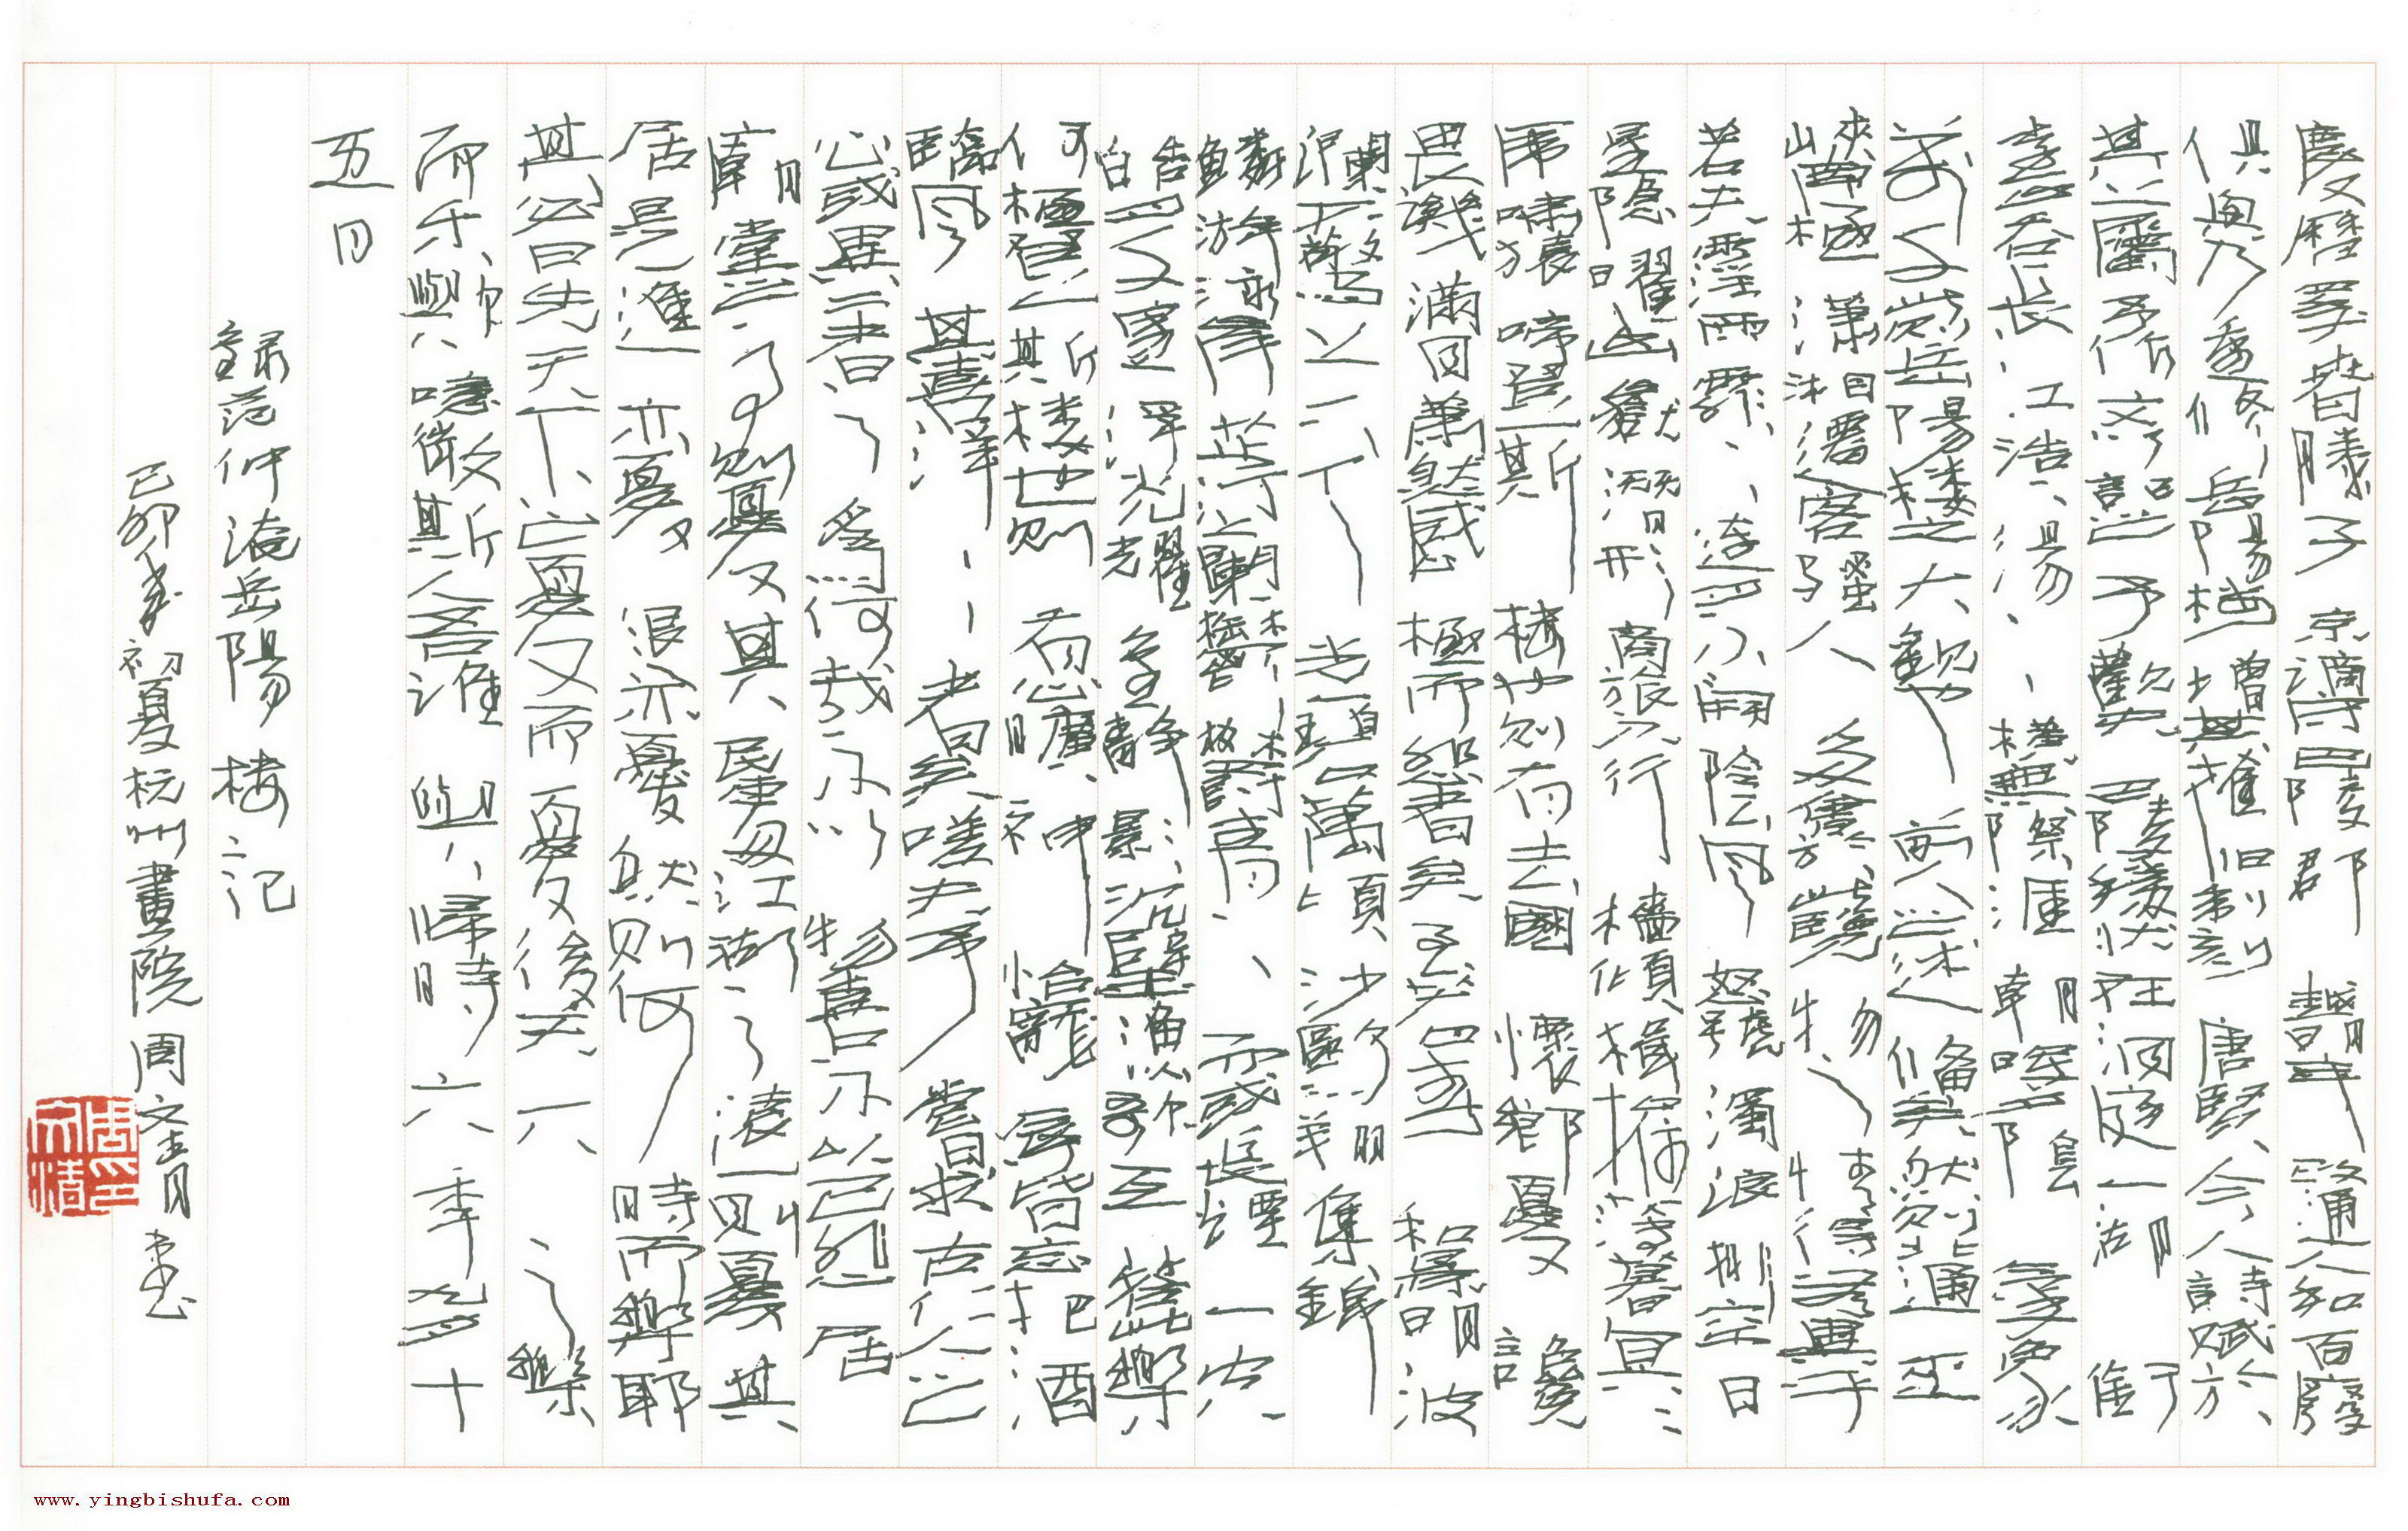 慶曆四年春滕子京謫守巴陵郡越明年政通人和百廢
俱興乃重修岳陽樓增其舊制刻唐賢今人詩賦於
其上屬予作文以記之予觀夫巴陵勝狀在洞庭一湖銜
遠山吞長江浩浩湯湯橫無際涯朝暉夕陰氣象
萬千此則岳陽樓之大觀也前人之述備矣然則北通巫
峽南極瀟湘遷客騷人多會於此覽物之情得無異乎
若夫霪雨霏霏連月不開陰風怒號濁浪排空日
星隱曜山嶽潛形商旅不行檣傾楫摧薄暮冥冥
虎嘯猿啼登斯樓也則有去國懷鄉憂讒
畏譏滿目蕭然感極而悲者矣至若春和景明波
瀾不驚上下天光一碧萬頃沙鷗翔集錦
鱗游泳岸芷汀蘭鬱鬱青青而或長煙一空
皓月千里浮光耀金靜影沉璧漁歌互答此樂
何極登斯樓也則有心曠神怡寵辱皆忘把酒
臨風其喜洋洋者矣嗟夫予嘗求古仁人之
心或異二者之為何哉不以物喜不以己悲居
廟堂之高則憂其民處江湖之遠則憂其
君是進亦憂退亦憂然則何時而樂耶
其必曰先天下之憂而憂後天下之樂
而樂歟噫微斯人吾誰與歸時六年九月十
五日
錄范仲淹岳陽樓記
己卯年初夏杭州畫院周文清書
周文清印
www.yingbishufa.com